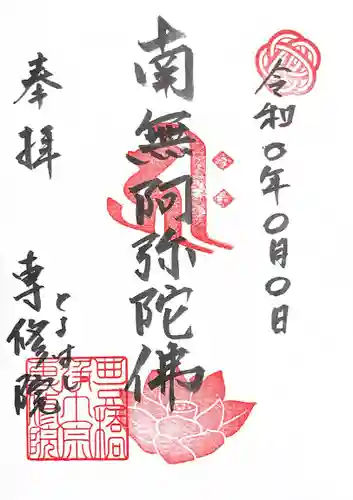 令和〇年〇月〇日
南無阿弥陀佛
奉拝
とよすし
専修院